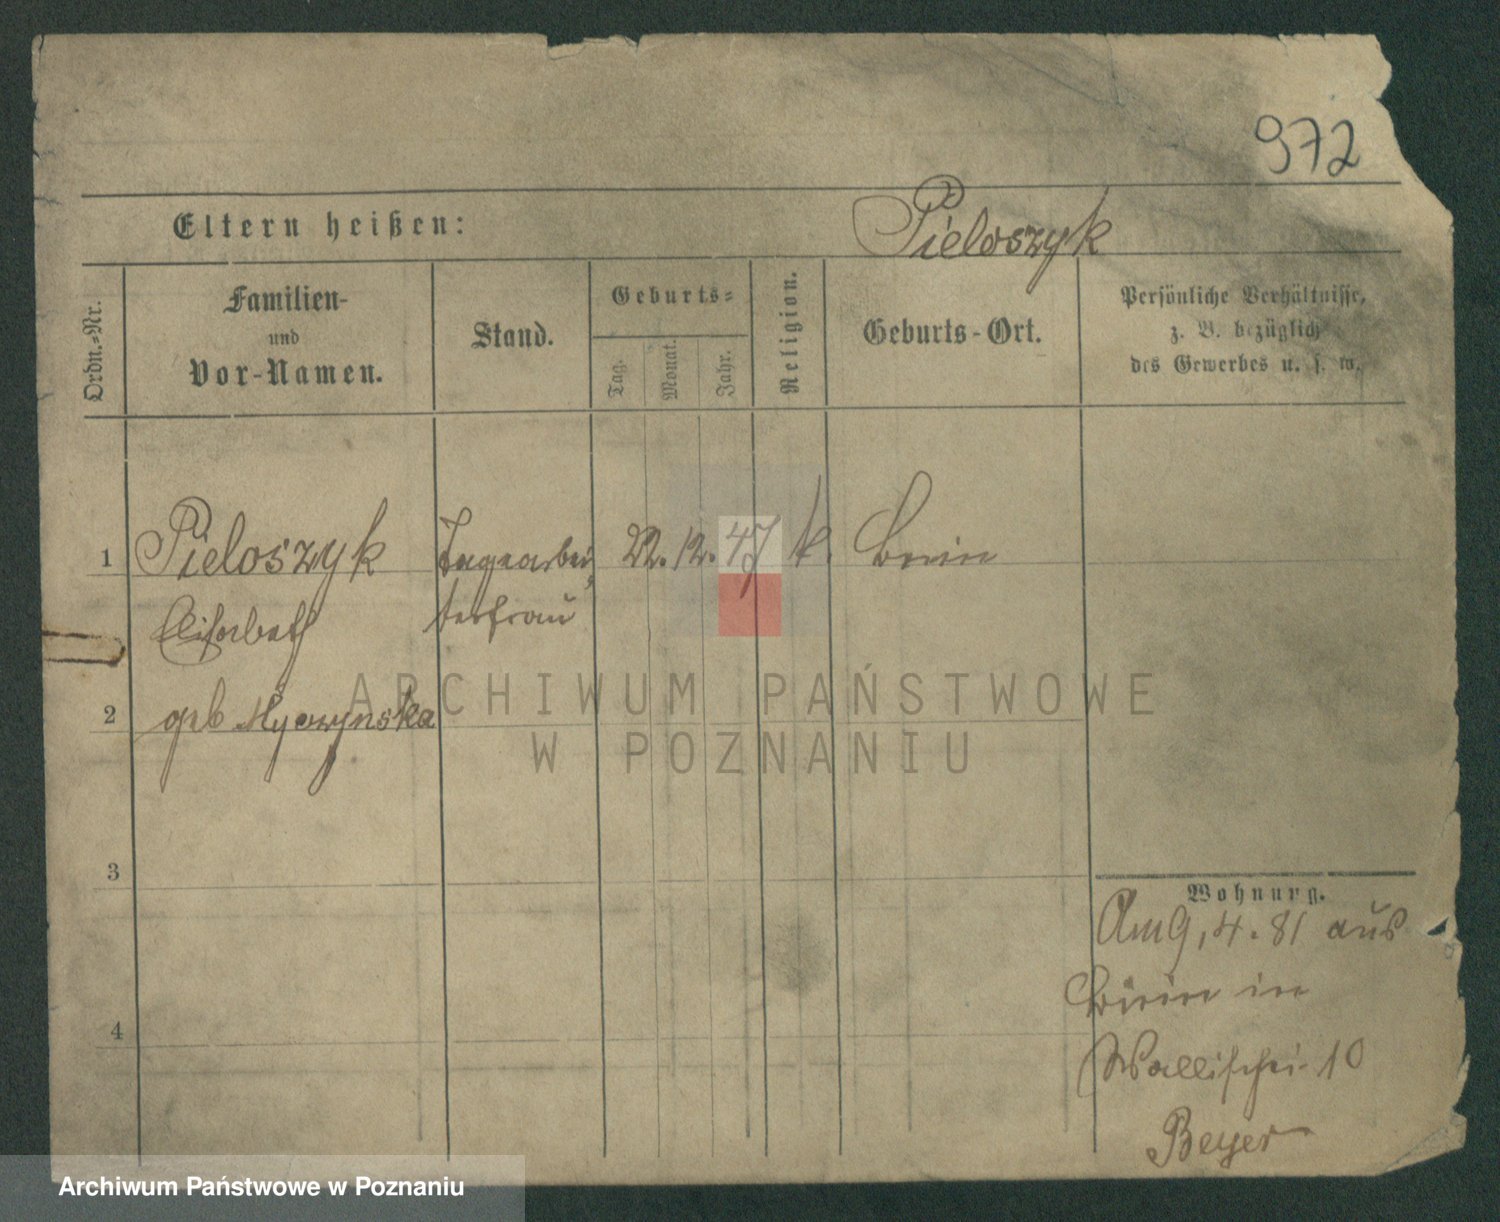 972
Eltern heißen: Pieloszyk
Ordn.-Nr.
Familien-
und
Vor-Namen.
Stand.
Geburts-
Tag.
Monat.
Jahr.
Religion.
Geburts-Ort.
Persönliche Verhältnisse,
z. B. bezüglich
des Gewerbes u. s. w.
1 Pieloszyk Tagearbei 22. 12. 47 k.
Elisabeth terfrau
2 geb
3
Wohnung.
Am 9, 4. 81 aus
in
4
Wallischei 10
Beyer
ARCHIWUM PAŃSTWOWE
W POZNANIU
Archiwum Państwowe w Poznaniu